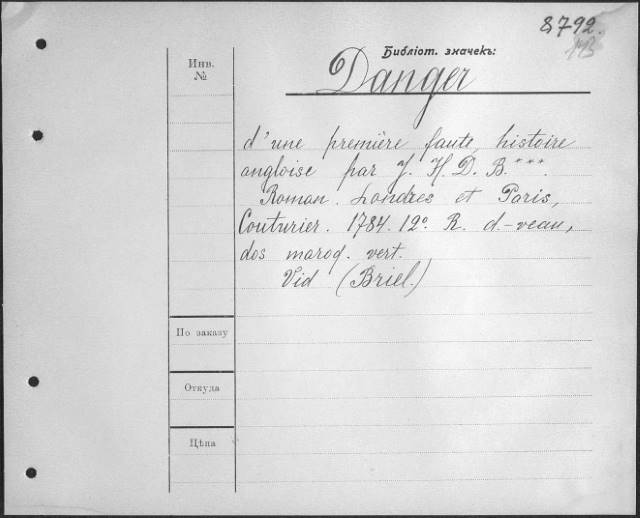 8792.
Библіот. значекъ:
Инв.
№
Danger
d'une première faute, histoire
angloise par J. H. D. B.***.
Roman. Londres et Paris,
Couturier. 1784. 12°. R. d.-veau,
dos maroq. vert.
Vid (Briel.)
По заказу
Откуда
Цѣна